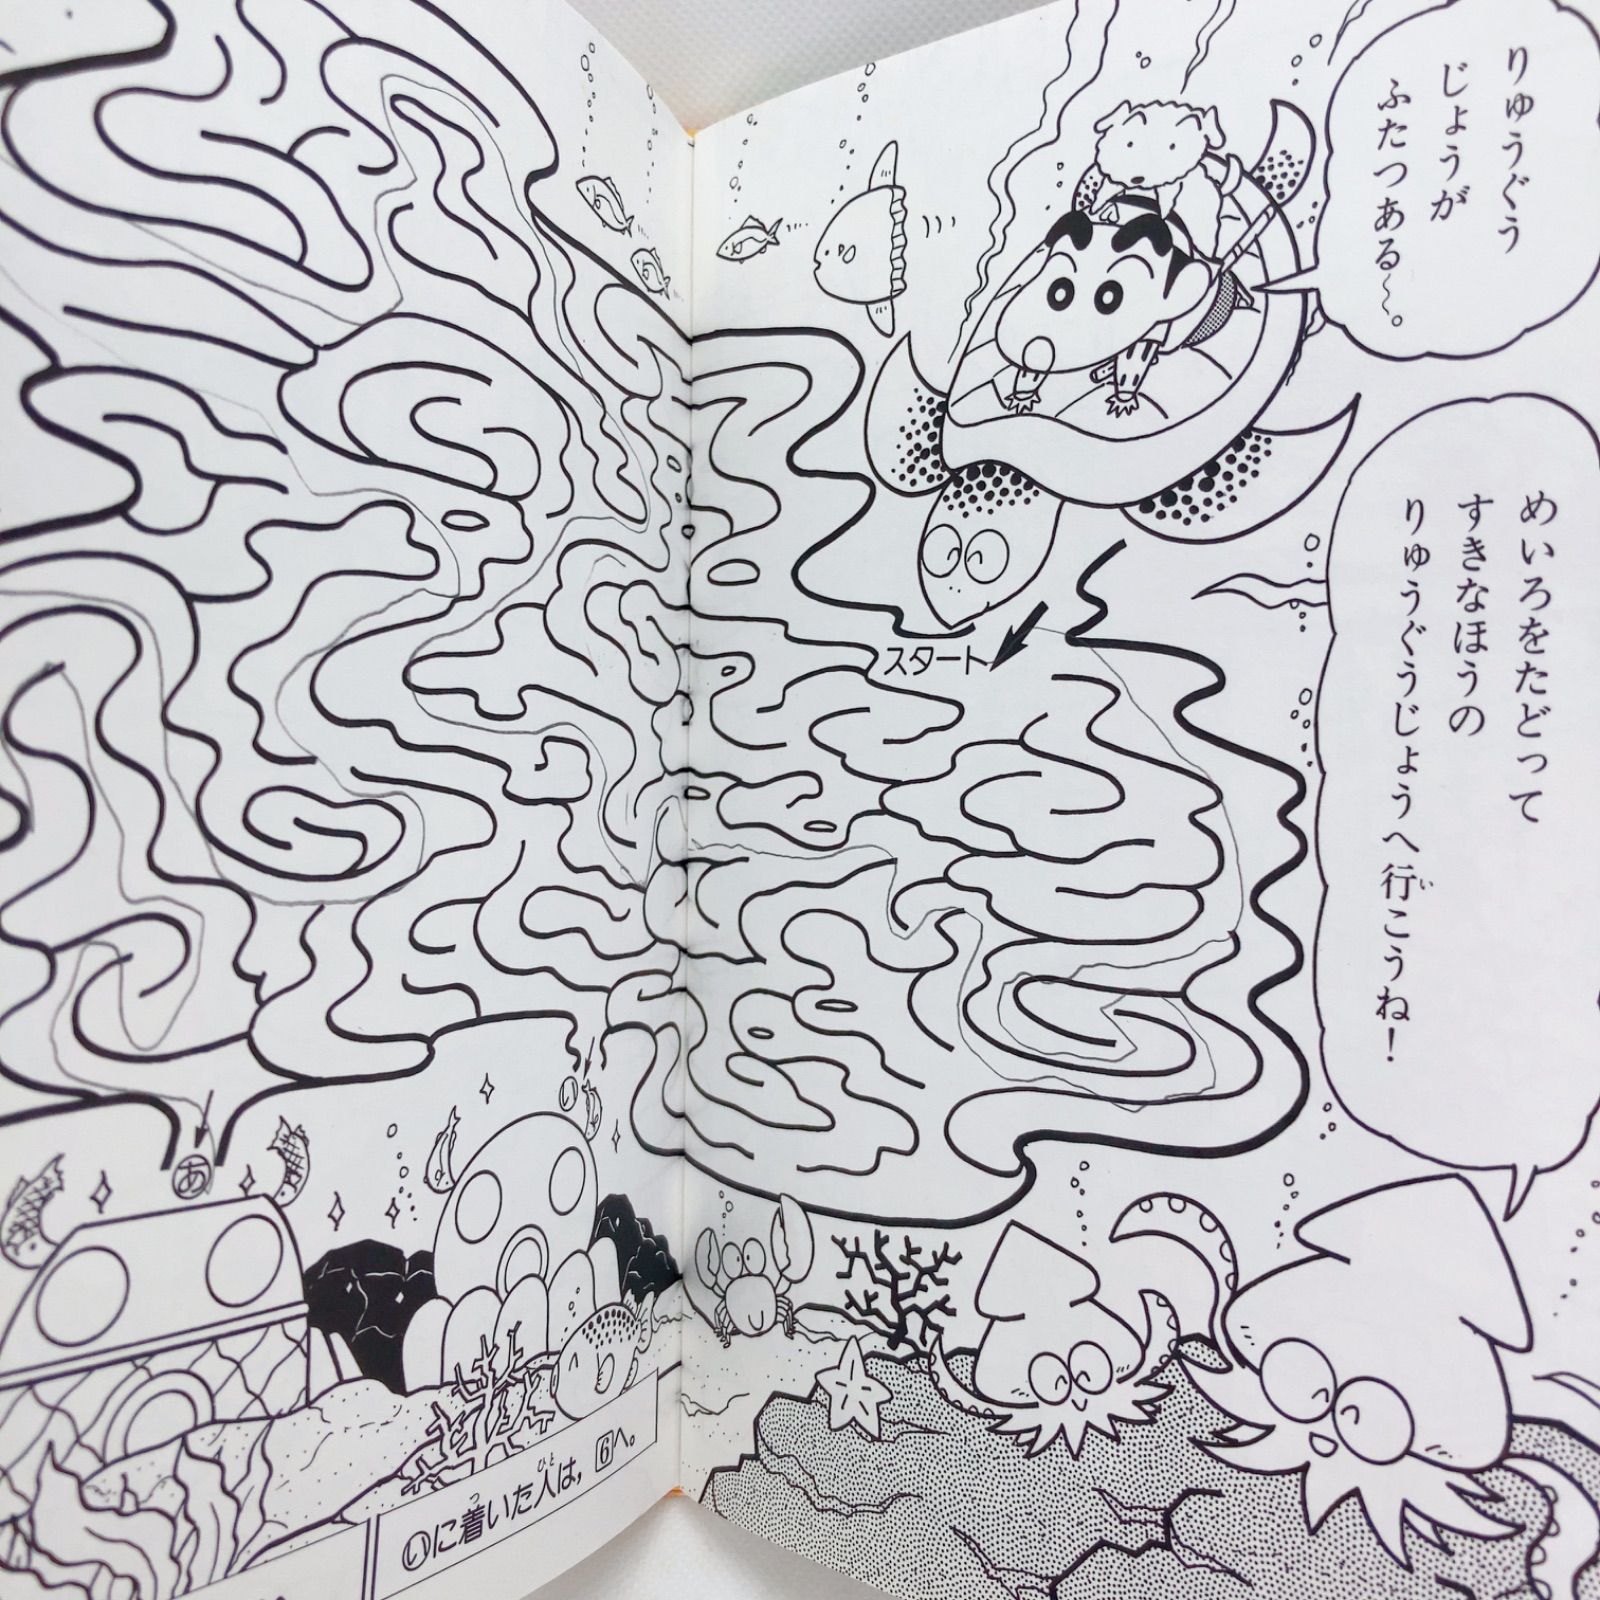 りゅうぐう
じょうが
ふたつある～。
めいろをたどって
すきなほうの
りゅうぐうじょうへ行こうね！
い
スタート
あ
い
いに着いた人は、6へ。
つ
ひと